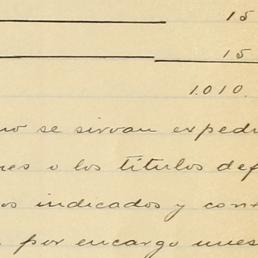 15
15
1.010.
no se sirvan expedi
nes o los títulos def
os indicados y con
por encargo nues